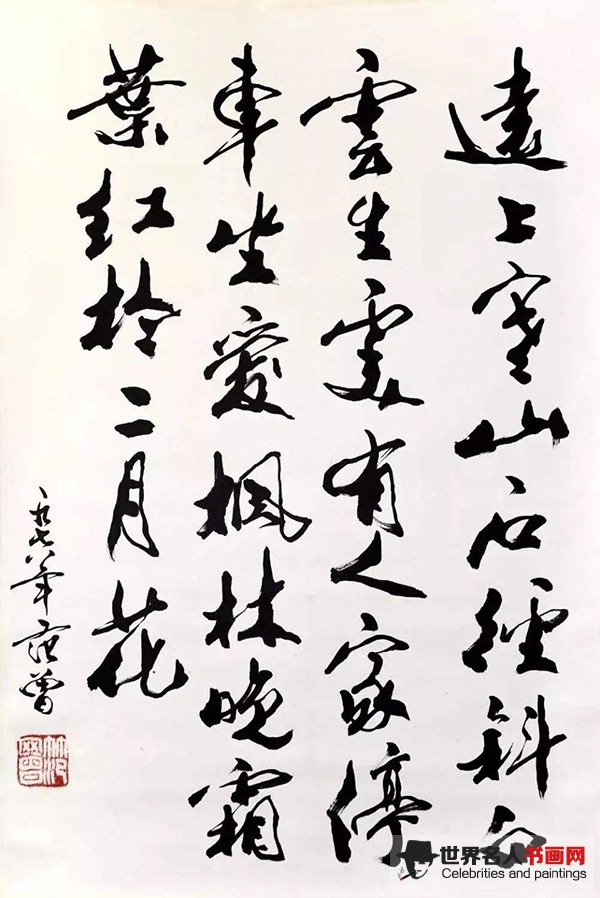 遠上寒山石徑斜白
雲生處有人家停
車坐愛楓林晚霜
葉紅於二月花
一九七八年 范曾
世界名人书画网
Celebrities and paintings